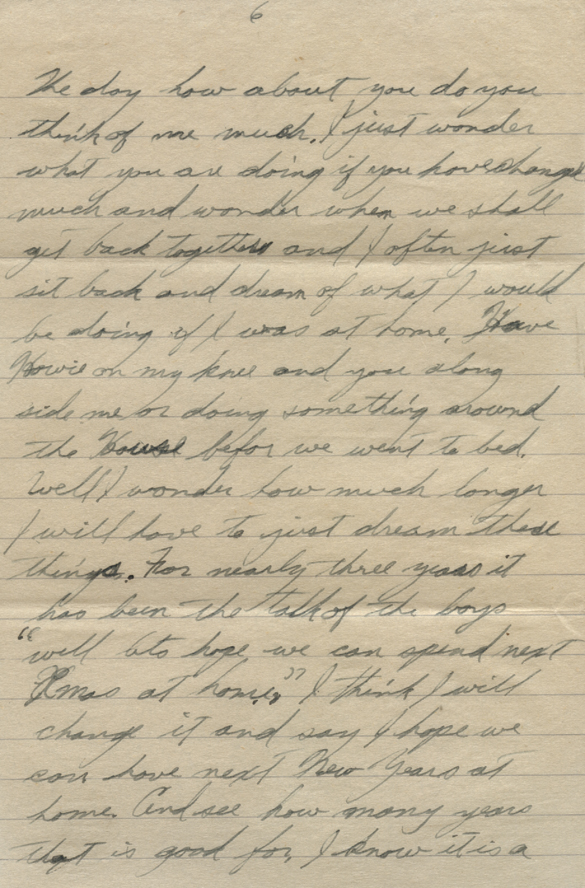 6
the day how about you do you
think of me much. I just wonder
what you are doing if you have change
much and wonder when we shall
get back together and I often just
sit back and dream of what I would
be doing if I was at home. Have
Howie on my knee and you along
side me or doing something around
the House befor we went to bed.
Well I wonder how much longer
I will have to just dream these
things. For nearly three years it
has been the talk of the boys
"well lets hope we can spend next
Xmas at home," I think I will
change it and say I hope we
can have next New Years at
home. And see how many years
that is good for, I know it is a